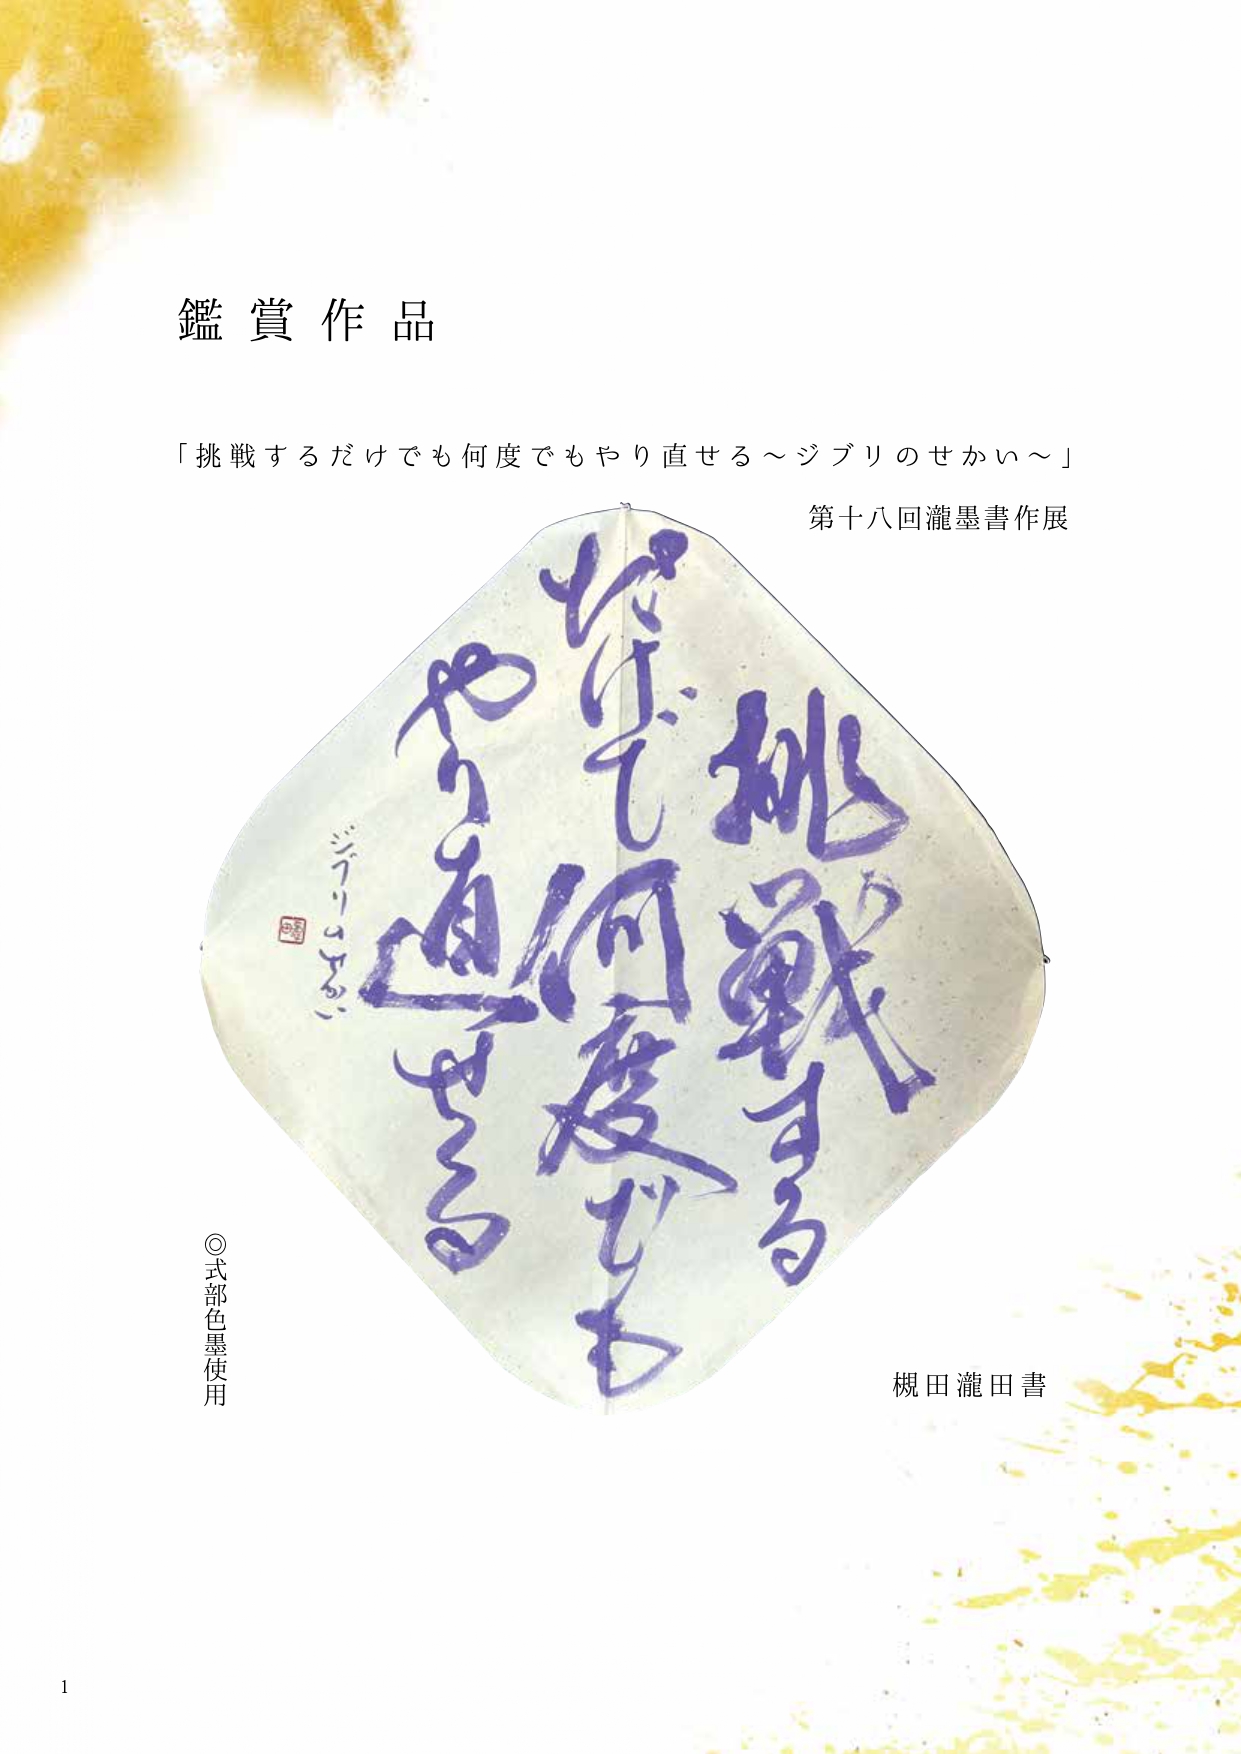 鑑賞作品
「挑戦するだけでも何度でもやり直せる～ジブリのせかい～」
第十八回瀧墨書作展
挑戦する
だけで何度でも
やり直せる
ジブリのせかい
◎式部色墨使用
槻田瀧田書
1